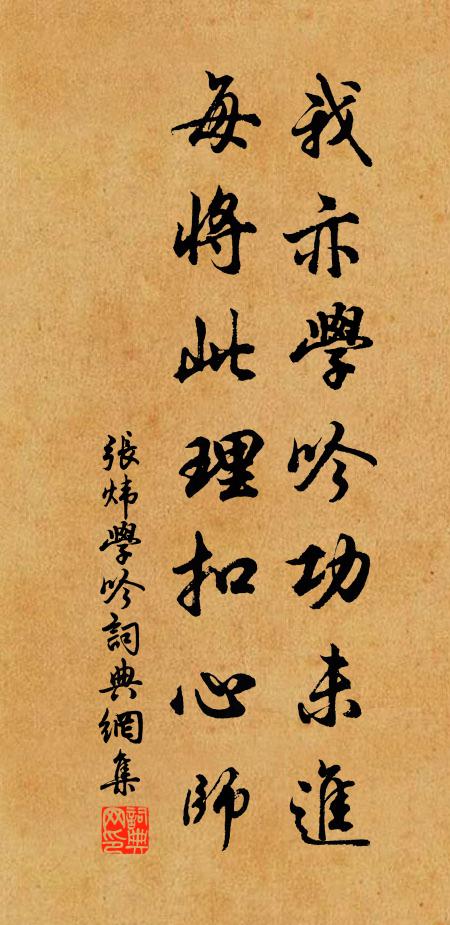 我亦學吟功未進
每將此理扣心師
張煒學吟詞典網集
詞典網印